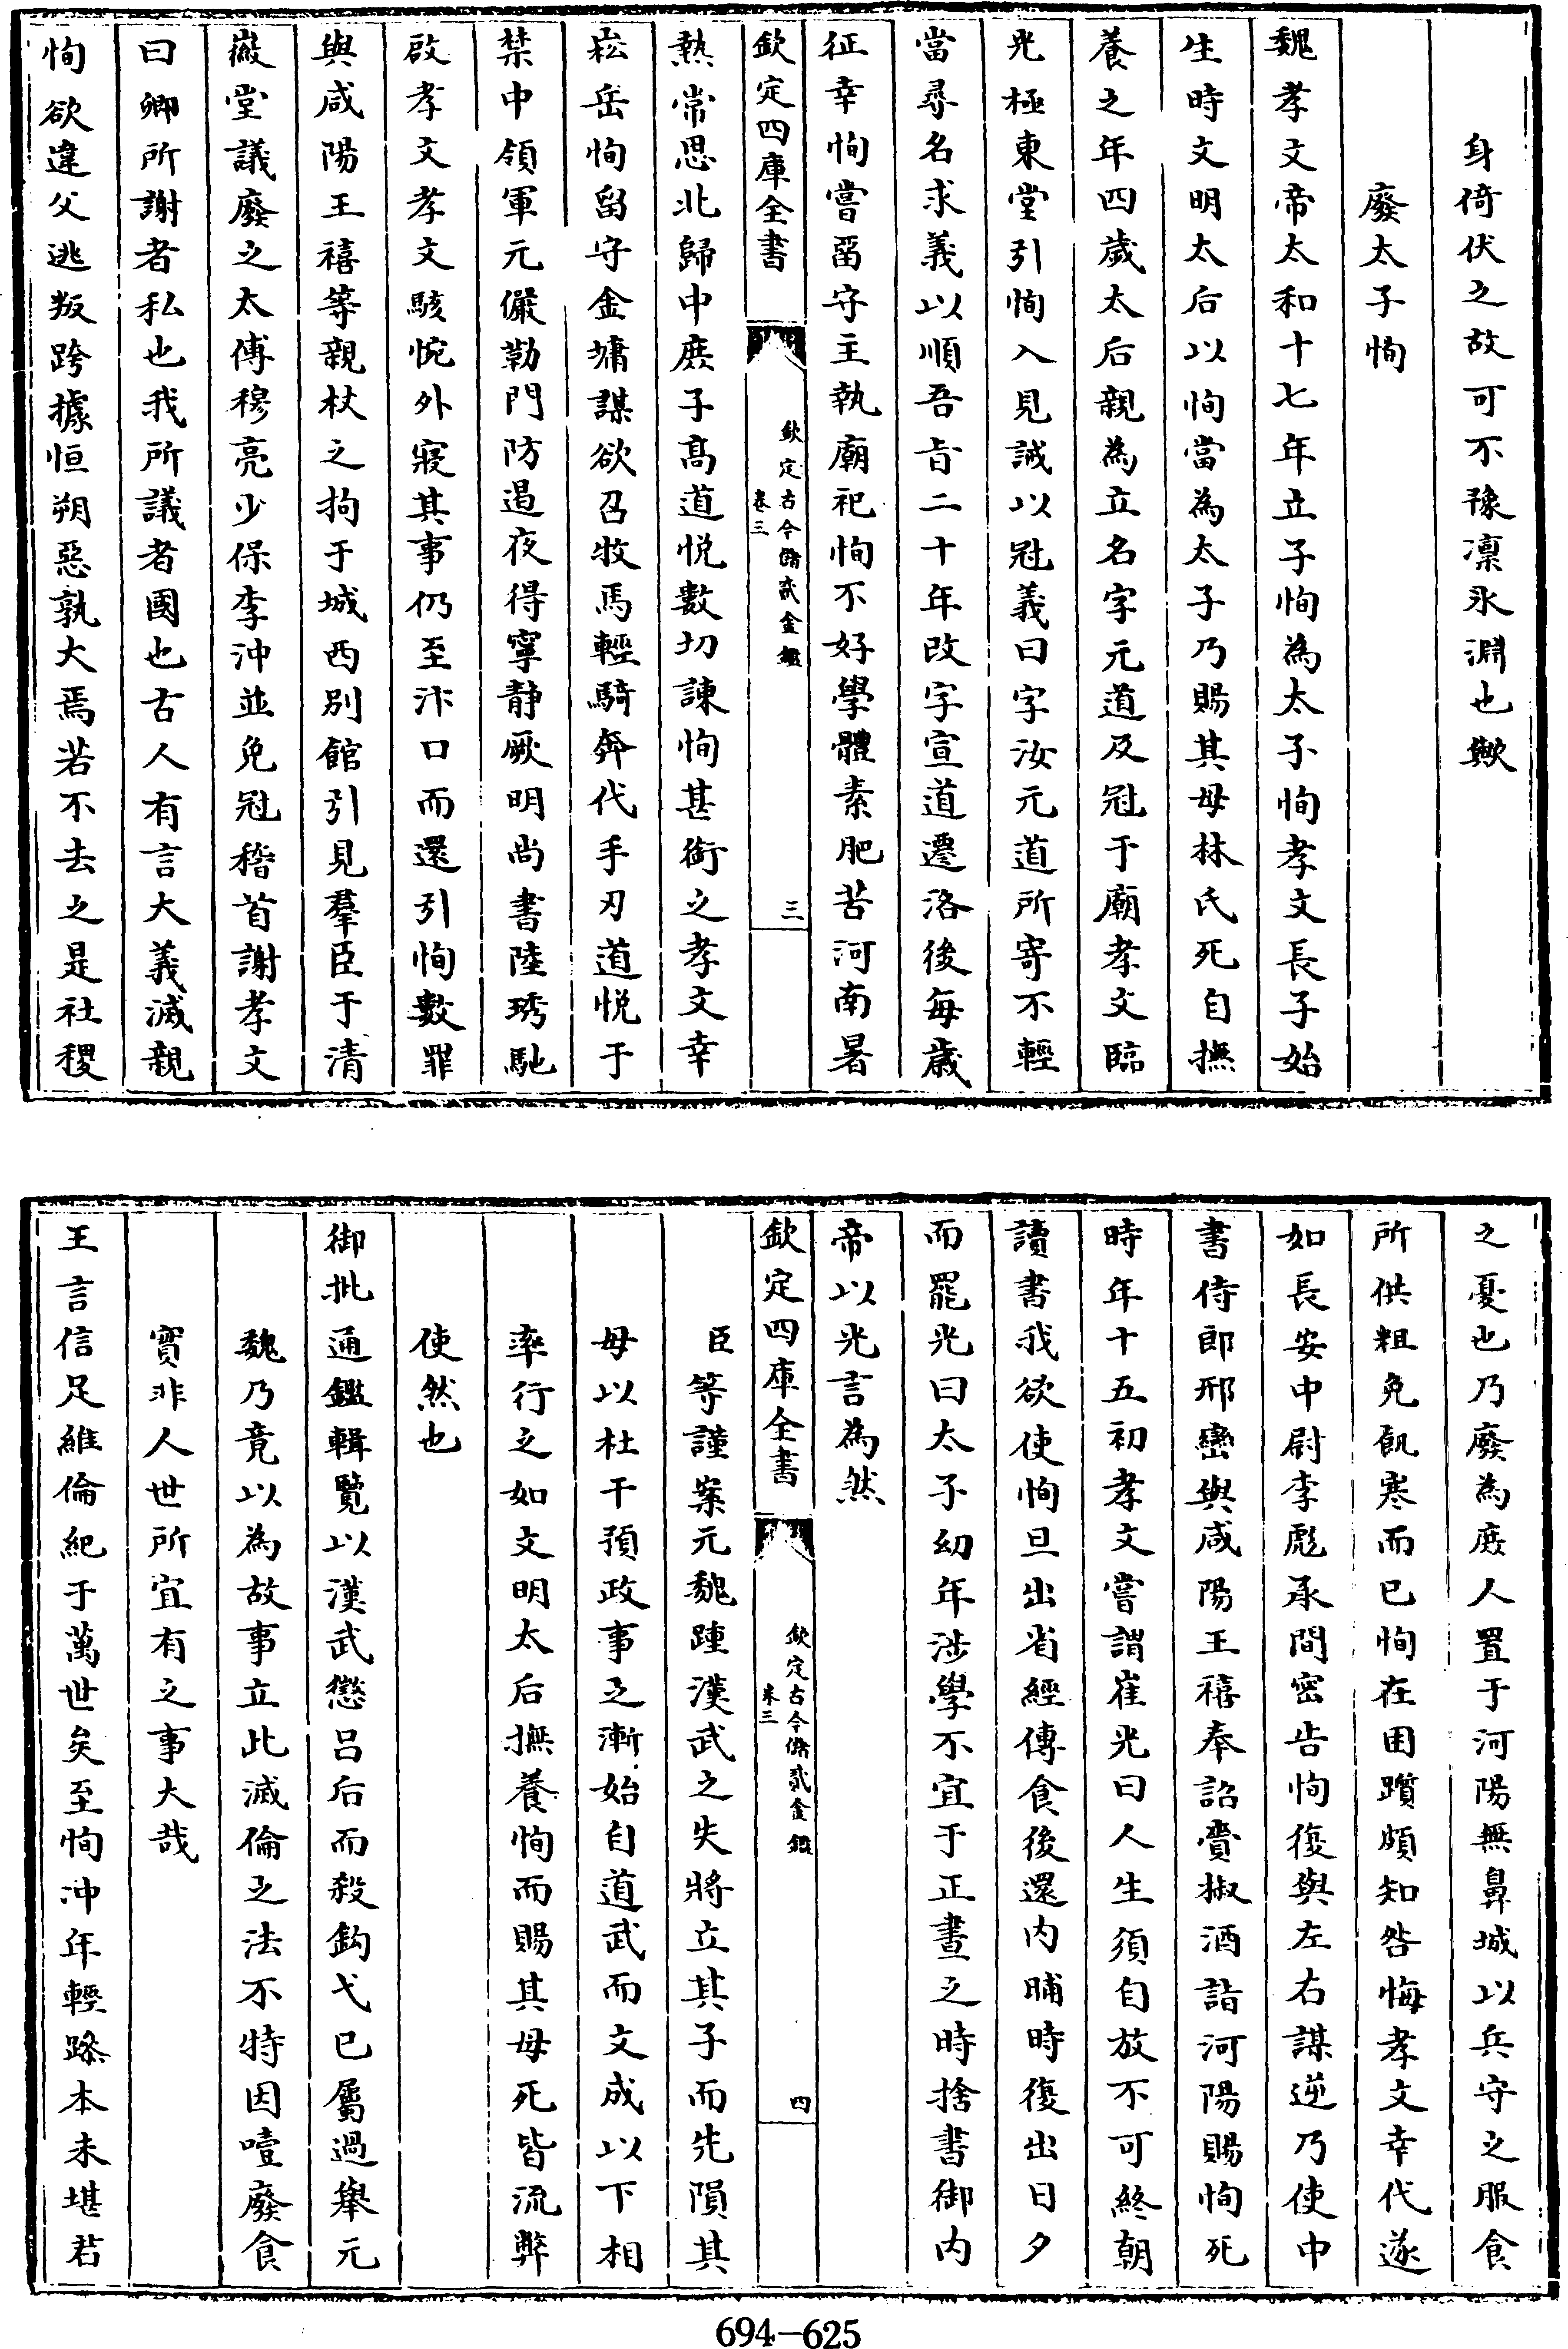 身倚伏之故可不豫凛氷淵也歟
廢太子恂
魏孝文帝太和十七年立子恂為太子恂孝文長子始
生時文明太后以恂當為太子乃賜其母林氏死自撫
養之年四歲太后親為立名字元道及冠于廟孝文臨
光極東堂引恂入見誡以冠義曰字汝元道所寄不輕
當尋名求義以順吾旨二十年改字宣道遷洛後每歲
征幸恂嘗留守主執廟祀恂不好學體素肥苦河南暑
欽定四庫全書
欽定古今儲貳金鑑
卷三
三
熱常思北歸中庶子髙道悦數切諫恂甚銜之孝文幸
崧岳恂留守金墉謀欲召牧馬輕騎奔代手刃道悦于
禁中領軍元儼勒門防遏夜得寧静厥明尚書陸琇馳
啟孝文孝文駭惋外寢其事仍至汴口而還引恂數罪
與咸陽王禧等親杖之拘于城西别館引見羣臣于清
徽堂議廢之太傅穆亮少保李沖並免冠稽首謝孝文
曰卿所謝者私也我所議者國也古人有言大義滅親
恂欲違父逃叛跨據恒朔惡孰大焉若不去之是社稷
之憂也乃廢為庶人置于河陽無鼻城以兵守之服食
所供粗免飢寒而已恂在困躓頗知咎悔孝文幸代遂
如長安中尉李彪承間密告恂復與左右謀逆乃使中
書侍郎邢巒與咸陽王禧奉詔賫椒酒詣河陽賜恂死
時年十五初孝文嘗謂崔光曰人生須自放不可終朝
讀書我欲使恂旦出省經傳食後還内晡時復出日夕
而罷光曰太子幼年涉學不宜于正晝之時捨書御内
帝以光言為然
欽定四庫全書
欽定古今儲貳金鑑
卷三
四
臣等謹案元魏踵漢武之失將立其子而先隕其
母以杜干預政事之漸始自道武而文成以下相
率行之如文明太后撫養恂而賜其母死皆流弊
使然也
御批通鑑輯覽以漢武懲呂后而殺鈎弋已屬過舉元
魏乃竟以為故事立此滅倫之法不特因噎廢食
實非人世所宜有之事大哉
王言信足維倫紀于萬世矣至恂沖年輕躁本未堪君
694-625